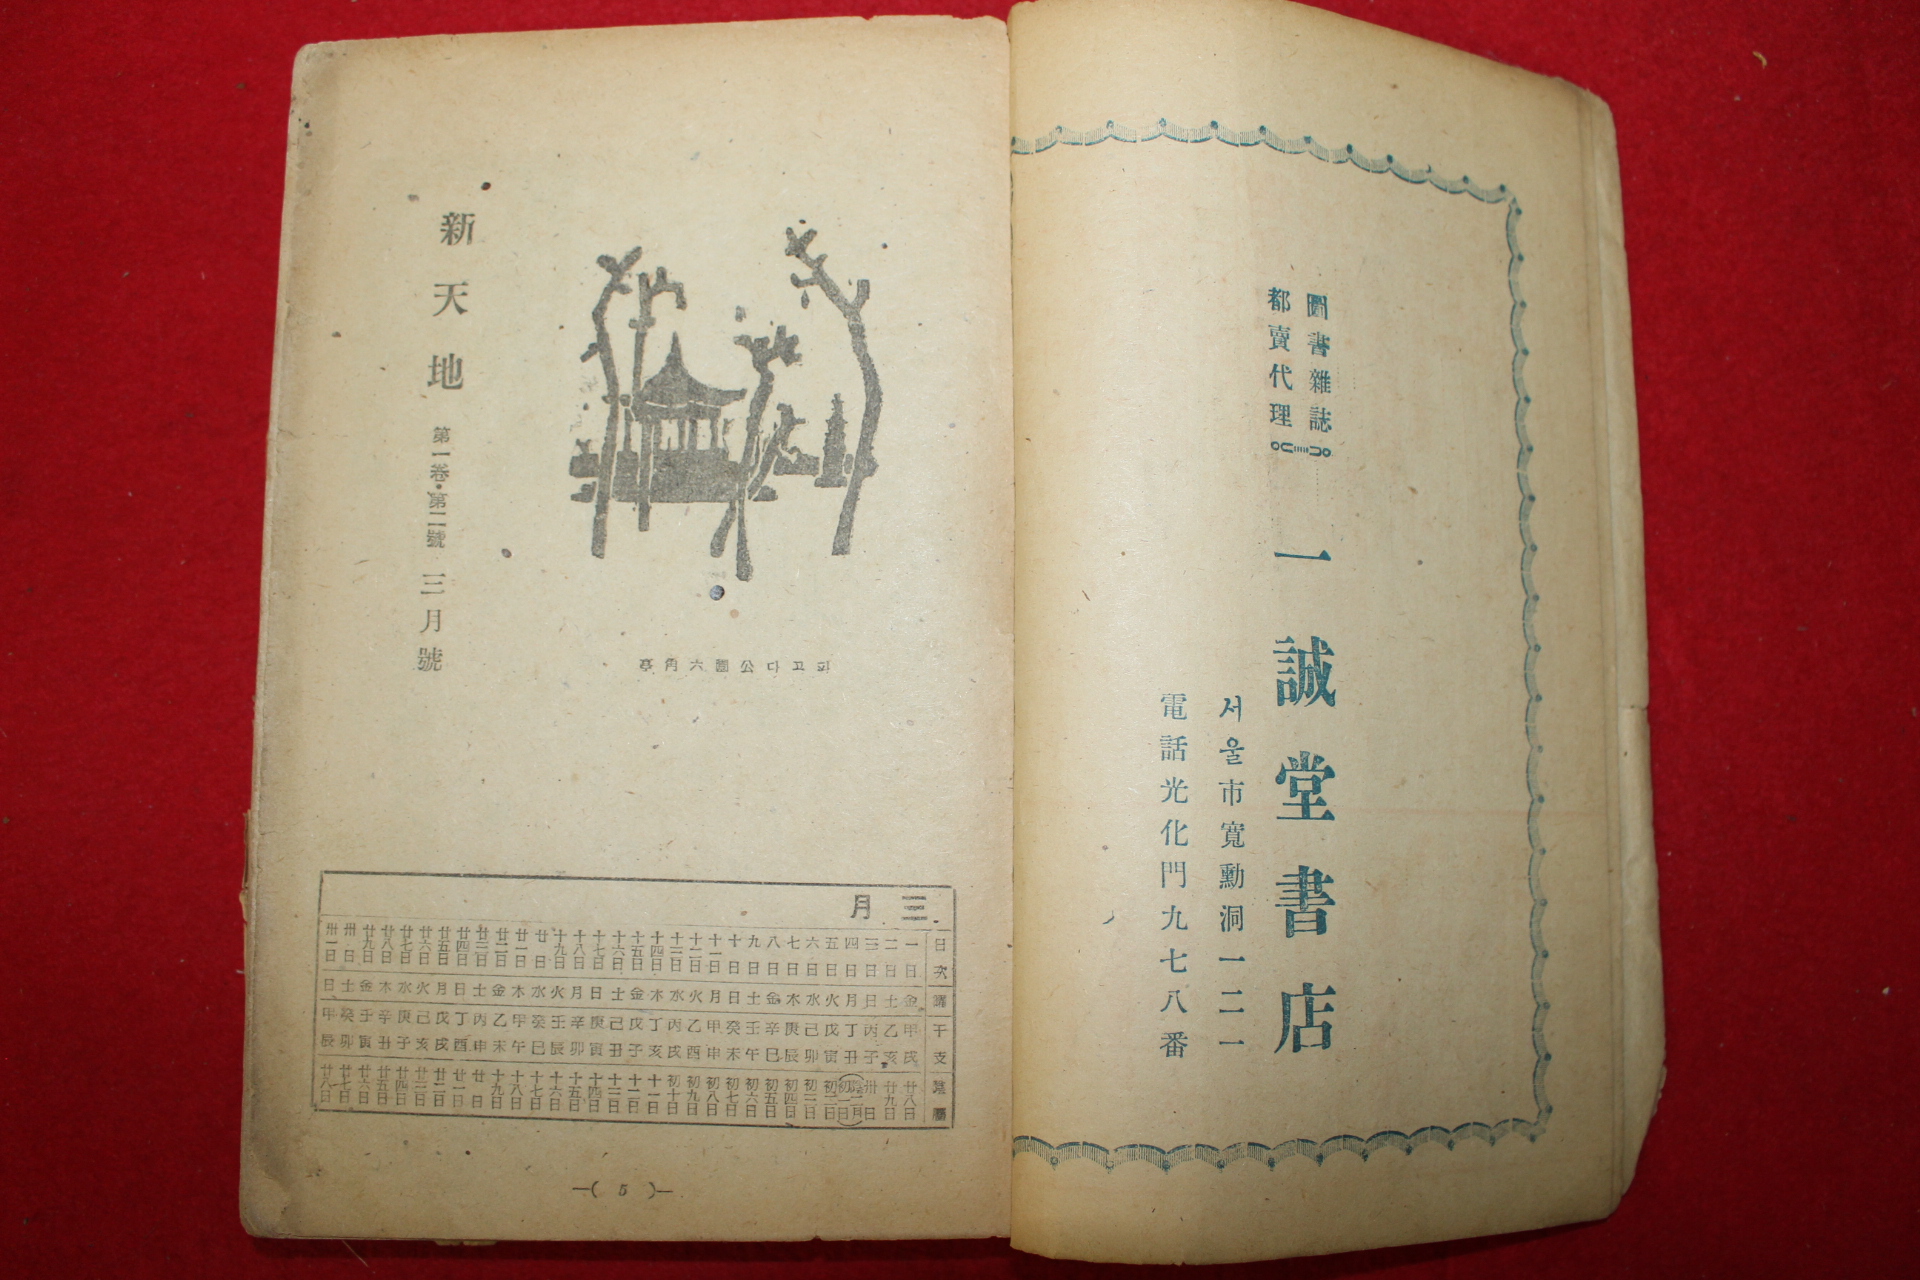 圖書雜誌
都賣代理
一誠堂書店
서울市寬勳洞一二一
電話光化門九七八番
파고다公園六角亭
新天地 第一卷・第二號 三月號
三月
日次 曜 干支 陰曆
一日 金 甲戌 廿八日
二日 土 乙亥 廿九日
三日 日 丙子 卅日
四日 月 丁丑 (陰二月初一日)
五日 火 戊寅 初二日
六日 水 己卯 初三日
七日 木 庚辰 初四日
八日 金 辛巳 初五日
九日 土 壬午 初六日
十日 日 癸未 初七日
十一日 月 甲申 初八日
十二日 火 乙酉 初九日
十三日 水 丙戌 初十日
十四日 木 丁亥 十一日
十五日 金 戊子 十二日
十六日 土 己丑 十三日
十七日 日 庚寅 十四日
十八日 月 辛卯 十五日
十九日 火 壬辰 十六日
廿日 水 癸巳 十七日
廿一日 木 甲午 十八日
廿二日 金 乙未 十九日
廿三日 土 丙申 廿日
廿四日 日 丁酉 廿一日
廿五日 月 戊戌 廿二日
廿六日 火 己亥 廿三日
廿七日 水 庚子 廿四日
廿八日 木 辛丑 廿五日
廿九日 金 壬寅 廿六日
卅日 土 癸卯 廿七日
卅一日 日 甲辰 廿八日
—( 5 )—